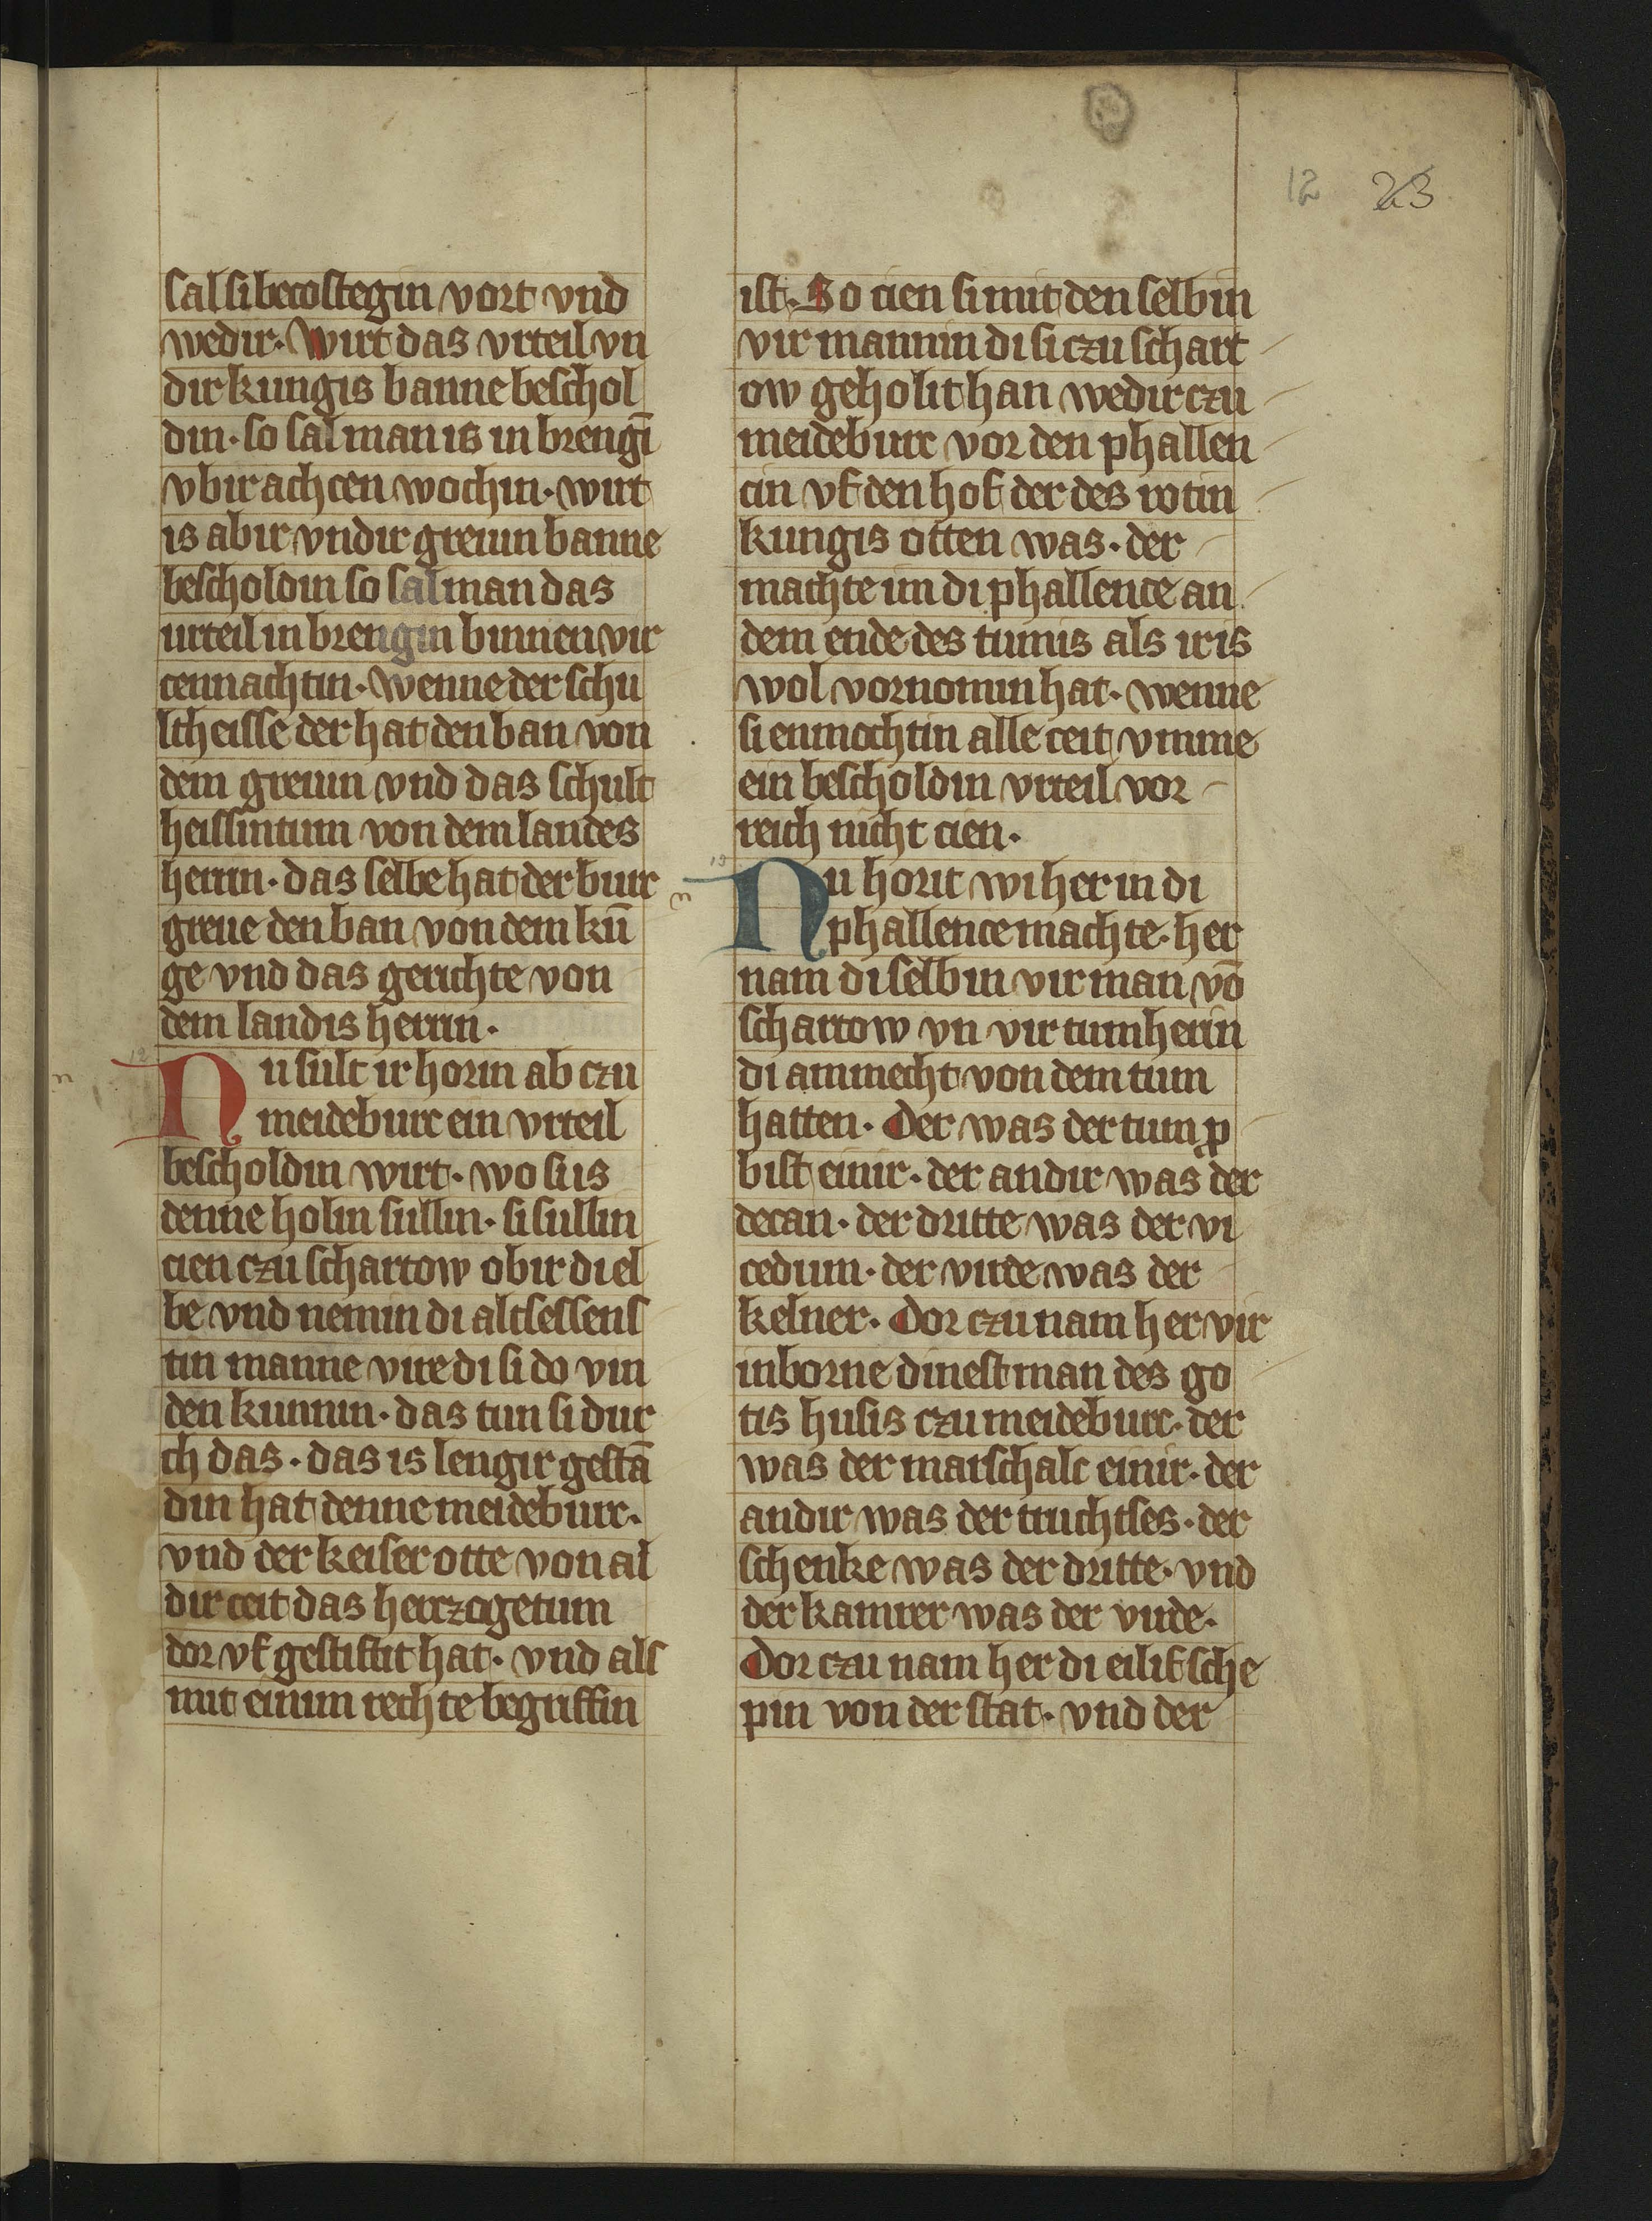 12 23
sal si becostegin vort vnd
wedir. Wirt das vrteil vn
dir kungis banne beschol
din. so sal man is in brengī
vbir achcen wochin. wirt
is abir vndir greuin banne
bescholdin so sal man das
urteil in brengin binnen vir
cennachtin. Wenne der schu
ltheisse der hat den ban von
dem greuin vnd das schult
heissintum von dem landes
herrin. das selbe hat der burc
greue den ban von dem kū
ge vnd das gerichte von
dem landis herrin.
12
n
Nu sult ir horin ab czu
meideburc ein vrteil
bescholdin wirt. wo si is
denne holin sullin. si sullin
cien czu schartow obir di el
be vnd nemin di altsessens
tin manne vire di si do vin
den kunnin. das tun si dur
ch das. das is lengir gestā
din hat denne meideburc.
vnd der keiser otte von al
dir ceit das herczogetum
dor vf gestiftit hat. vnd als
mit einim rechte begriffin
ist. So cien si mit den selbin
vir mannin di si czu schart
ow geholit han wedir czu
meideburc vor den phallen
cin vf den hof der des rotin
kungis otten was. der
machte im di phallence an
dem ende des tumis als ir is
wol vornomin hat. wenne
si enmochtin alle ceit vmme
ein bescholdin vrteil vor
reich nicht cien.
13
n
Nu horit wi her in di
phallence machte. her
nam di selbin vir man vō
schartow vn vir tumherin
di ammecht von dem tum
hatten. Der was der tump̲
bist einir. der andir was der
decan. der dritte was der vi
cedum. der virde was der
kelner. Dor czu nam her vir
inborne dinestman des go
tis husis czu meideburc. der
was der marschalc einir. der
andir was der truchtses. der
schenke was der dritte. vnd
der kamrer was der virde.
Dor czu nam her di eilif sche
pin von der stat. vnd der